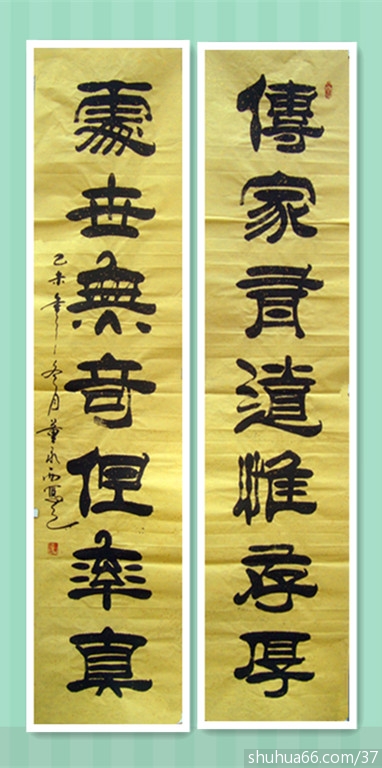 傳家有道惟存厚
處世無奇但率真
未年冬月董永西
shuhua66.com/37